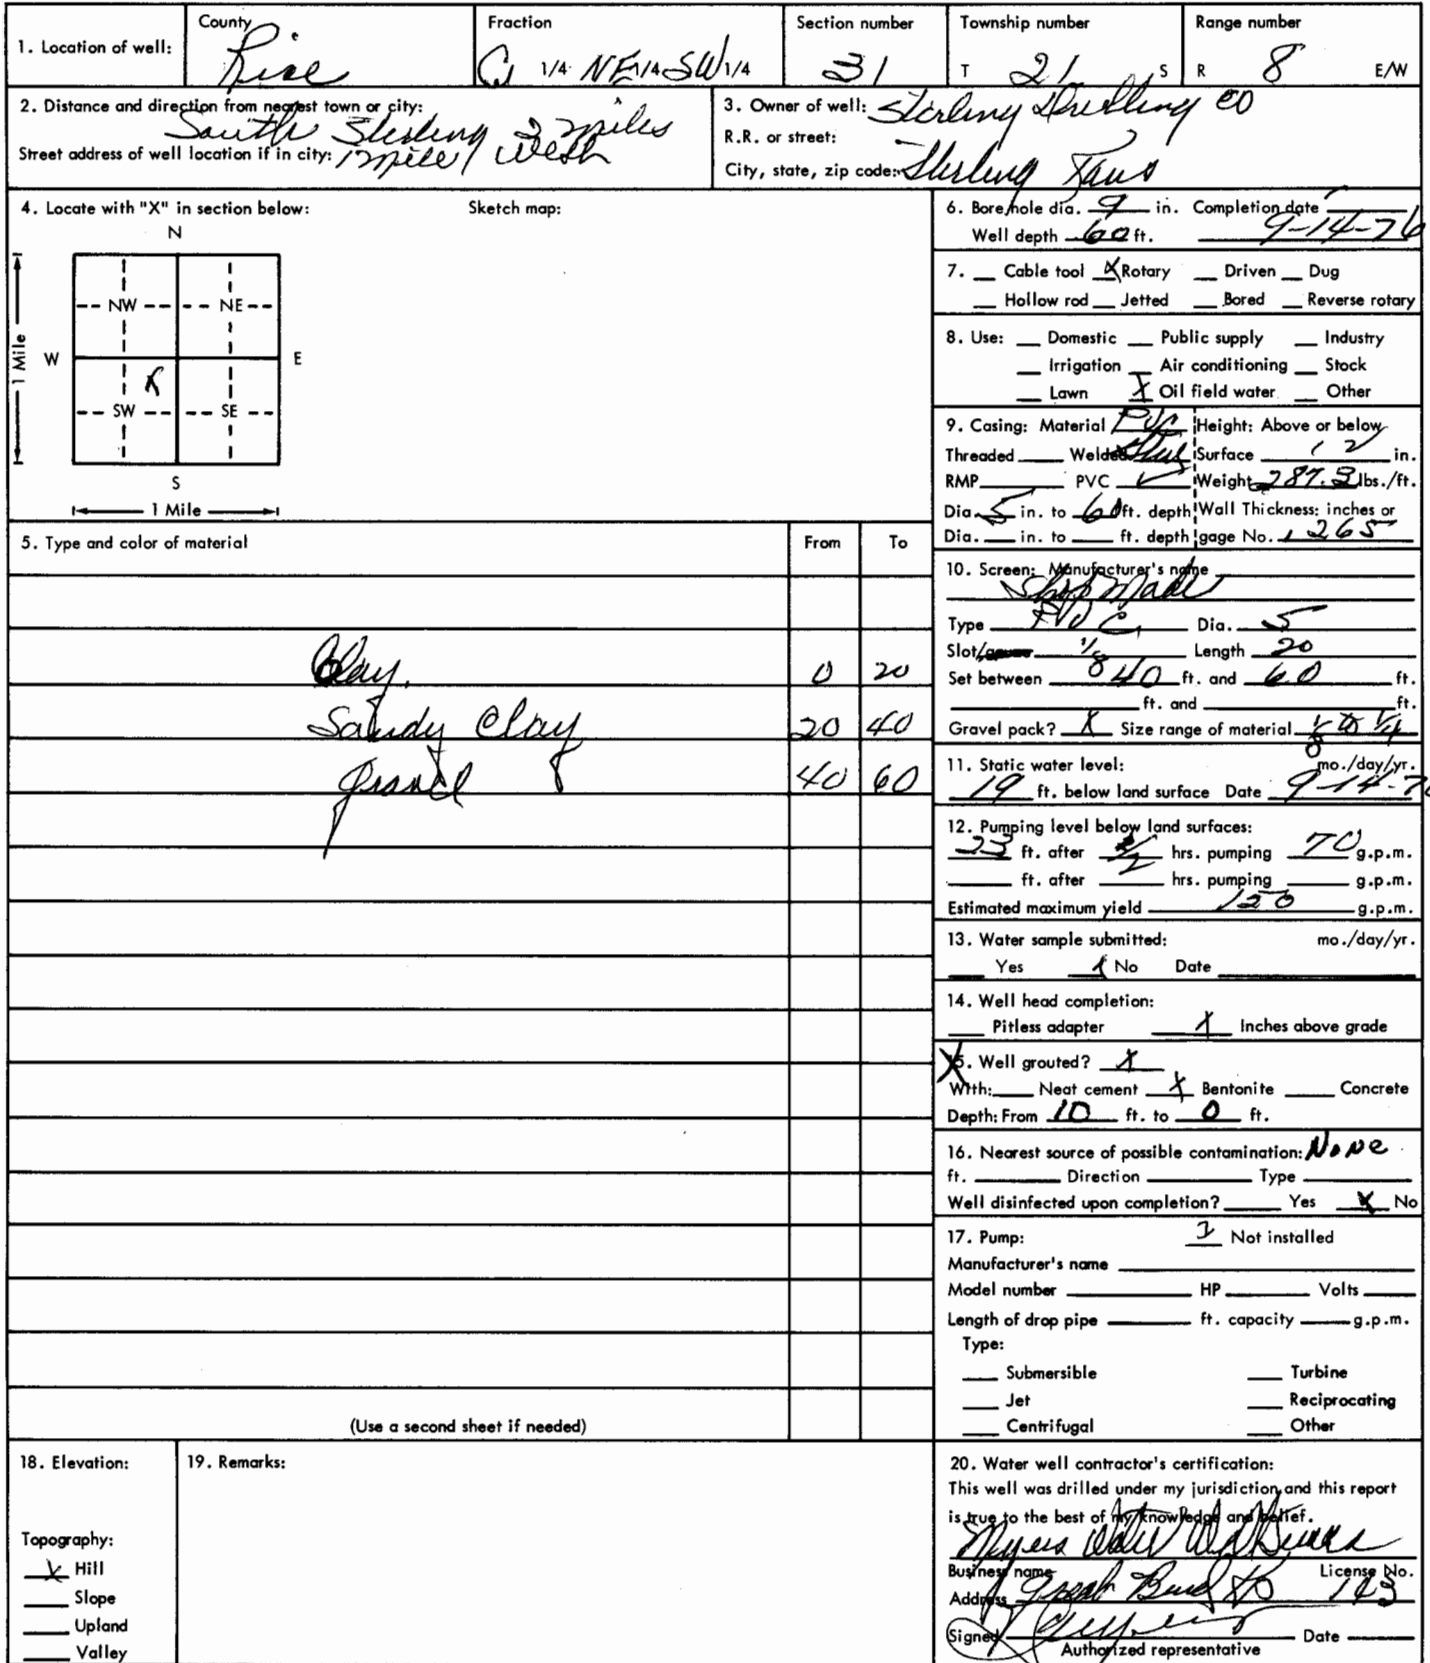 1. Location of well: County Rice Fraction 1/4 NE 1/4 SW 1/4 Section number 31 Township number T 21 S Range number R 8 E/W
2. Distance and direction from nearest town or city: South Sterling 3 miles
Street address of well location if in city: 1 mile West
3. Owner of well: Sterling Drilling CO
R.R. or street:
City, state, zip code: Sterling Kans
4. Locate with "X" in section below: Sketch map:
N
NW NE
W E
X
SW SE
S
1 Mile
1 Mile
5. Type and color of material From To
Clay. 0 20
Sandy Clay 20 40
gravel 40 60
(Use a second sheet if needed)
6. Bore hole dia. 9 in. Completion date
Well depth 60 ft. 9-14-76
7. Cable tool X Rotary Driven Dug
Hollow rod Jetted Bored Reverse rotary
8. Use: Domestic Public supply Industry
Irrigation Air conditioning Stock
Lawn X Oil field water Other
9. Casing: Material PVC Height: Above or below
Threaded Welded Surface 12 in.
RMP PVC ✓ Weight 287.3 lbs./ft.
Dia. 5 in. to 60 ft. depth Wall Thickness: inches or
Dia. in. to ft. depth gage No. .265
10. Screen: Manufacturer's name
Shop Made
Type PVC Dia. 5
Slot/ 1/8 Length 20
Set between 40 ft. and 60 ft.
ft. and ft.
Gravel pack? X Size range of material 1/8 to 1/4
11. Static water level: mo./day/yr.
19 ft. below land surface Date 9-14-76
12. Pumping level below land surfaces:
23 ft. after 1/2 hrs. pumping 70 g.p.m.
ft. after hrs. pumping g.p.m.
Estimated maximum yield 120 g.p.m.
13. Water sample submitted: mo./day/yr.
Yes X No Date
14. Well head completion:
Pitless adapter X Inches above grade
15. Well grouted? X
With: Neat cement X Bentonite Concrete
Depth: From 10 ft. to 0 ft.
16. Nearest source of possible contamination: None
ft. Direction Type
Well disinfected upon completion? Yes X No
17. Pump: Not installed
Manufacturer's name
Model number HP Volts
Length of drop pipe ft. capacity g.p.m.
Type:
Submersible Turbine
Jet Reciprocating
Centrifugal Other
18. Elevation:
Topography:
X Hill
Slope
Upland
Valley
19. Remarks:
20. Water well contractor's certification:
This well was drilled under my jurisdiction and this report
is true to the best of my knowledge and belief.
Myers Water Well
Business name License No.
Address Great Bend 143
Signed Date
Authorized representative